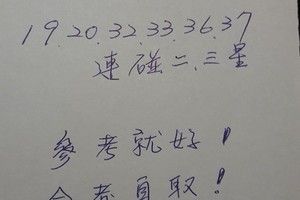 19.20.32.33.36.37
連碰二、三星
參考就好!
合者自取!